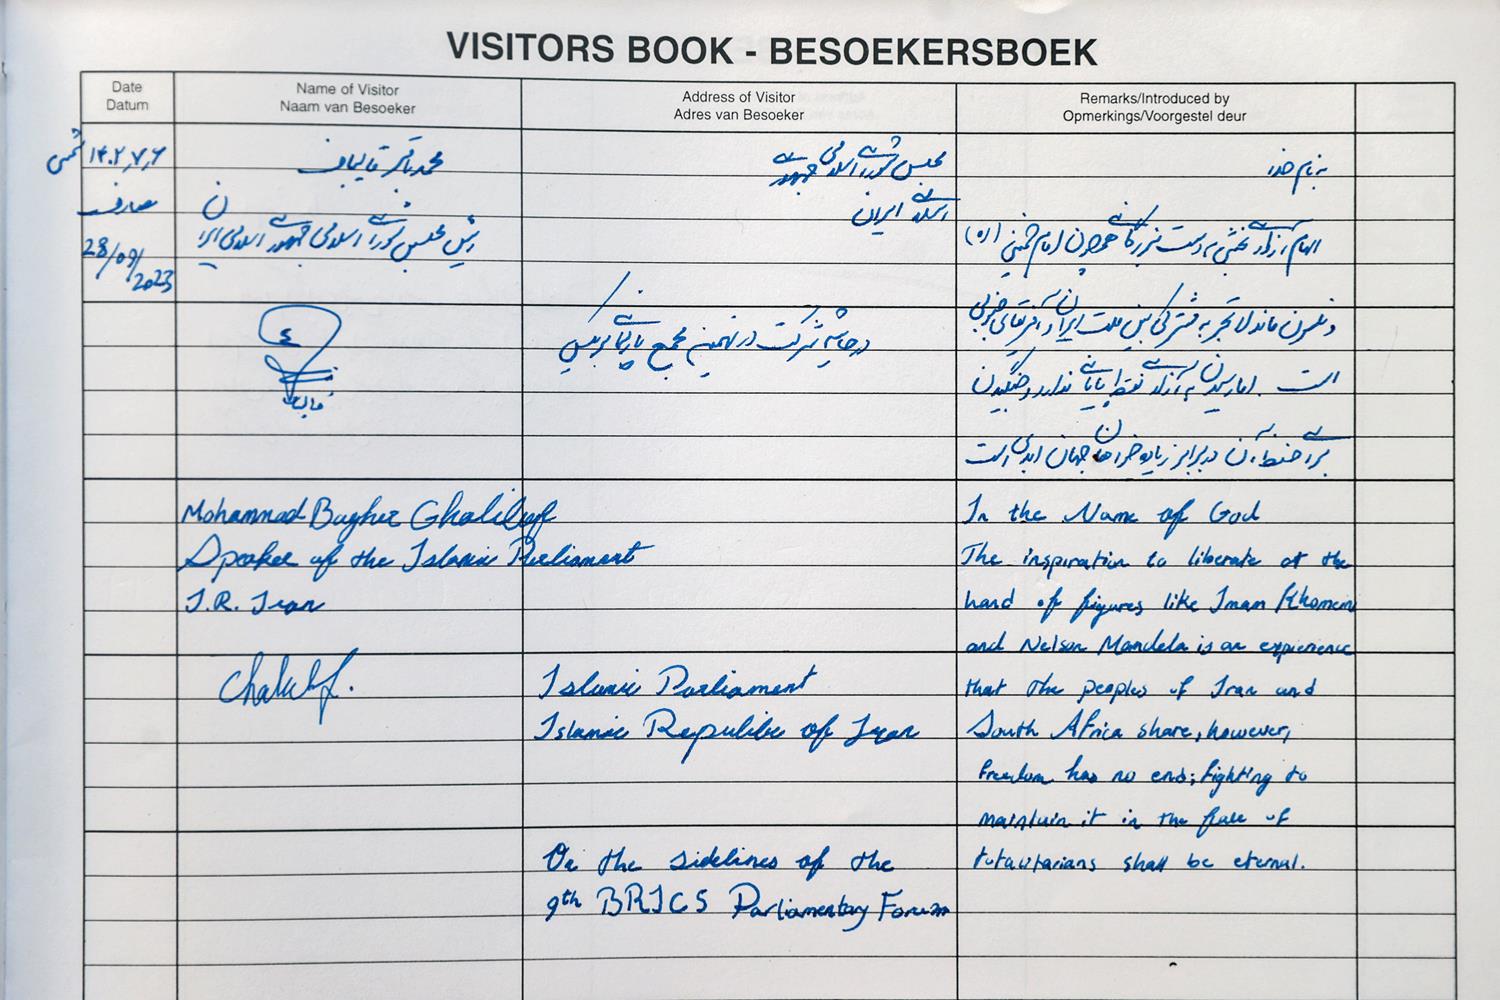 VISITORS BOOK - BESOEKERSBOEK
Date
Datum
Name of Visitor
Naam van Besoeker
Address of Visitor
Adres van Besoeker
Remarks/Introduced by
Opmerkings/Voorgestel deur
۱۴۰۲,۷,۶ شمسی
مصادف
28/09/2023
محمدباقر قالیباف
رئیس مجلس شورای اسلامی جمهوری اسلامی ایران
مجلس شورای اسلامی جمهوری
اسلامی ایران
در حاشیه شرکت در نهمین مجمع پارلمانی بریکس
به نام خدا
الهام آزادی بخشی به دست بزرگانی همچون امام خمینی (ره)
و نلسون ماندلا تجربه مشترکی بین ملت ایران و آفریقای جنوبی
است. اما رسیدن به آزادی نقطه پایانی ندارد و جنگیدن
برای حفظ آن در برابر زیاده خواهان جهان ابدی است
Mohammad Bagher Ghalibaf
Speaker of the Islamic Parliament
I.R. Iran
Islamic Parliament
Islamic Republic of Iran
On the sidelines of the
9th BRICS Parliamentary Forum
In the Name of God
The inspiration to liberate at the
hand of figures like Imam Khomeni
and Nelson Mandela is an expierience
that the peoples of Iran and
South Africa share, however,
freedom has no end; fighting to
maintain it in the face of
totalitarians shall be eternal.